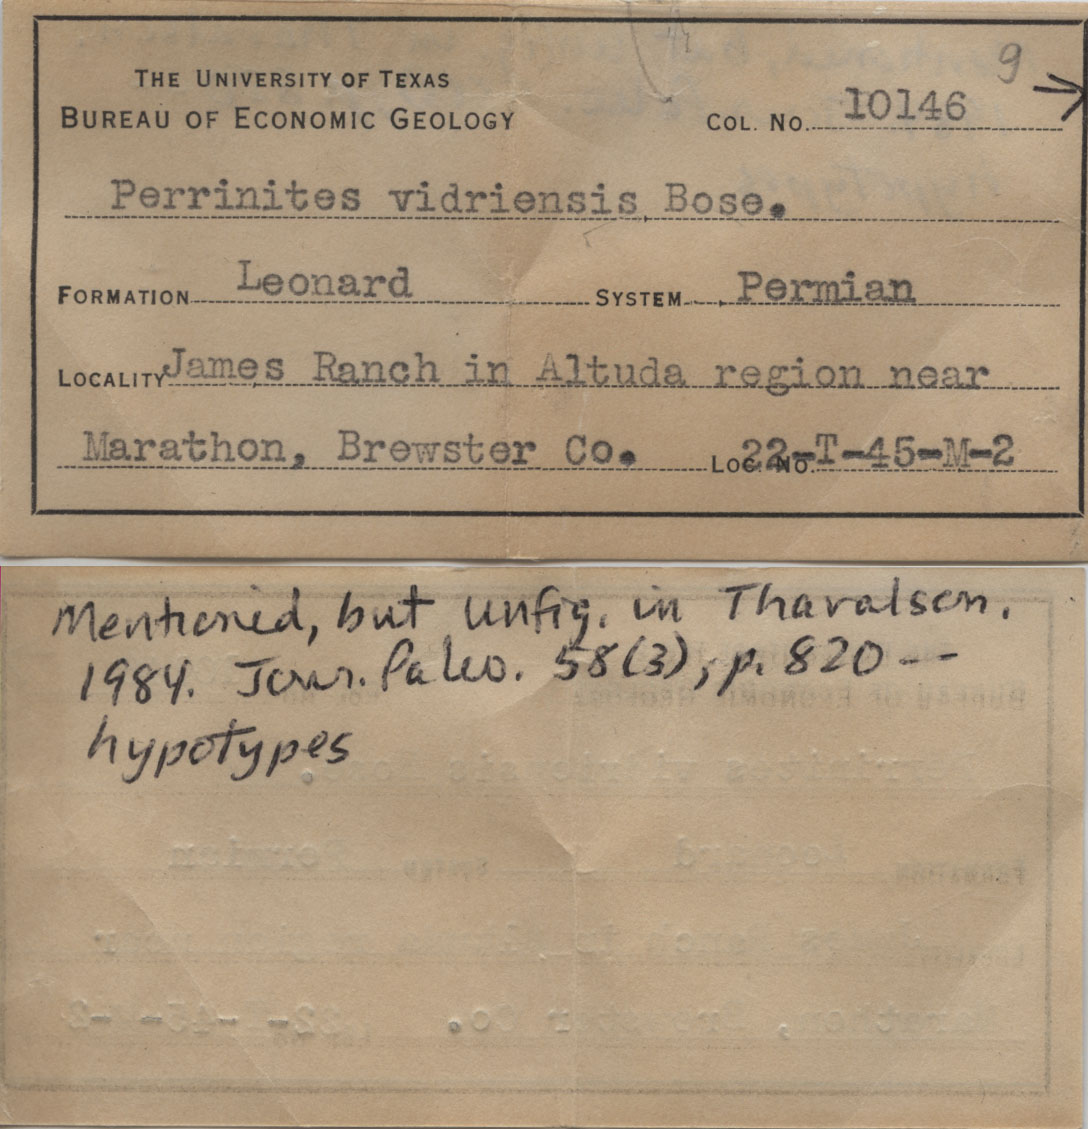 9
THE UNIVERSITY OF TEXAS
BUREAU OF ECONOMIC GEOLOGY
COL. NO. 10146
Perrinites vidriensis Bose.
FORMATION Leonard SYSTEM Permian
LOCALITY James Ranch in Altuda region near
Marathon, Brewster Co. LOC. NO. 22-T-45-M-2
Mentioned, but unfig. in Thavalson.
1984. Jour. Paleo. 58(3), p. 820 --
hypotypes